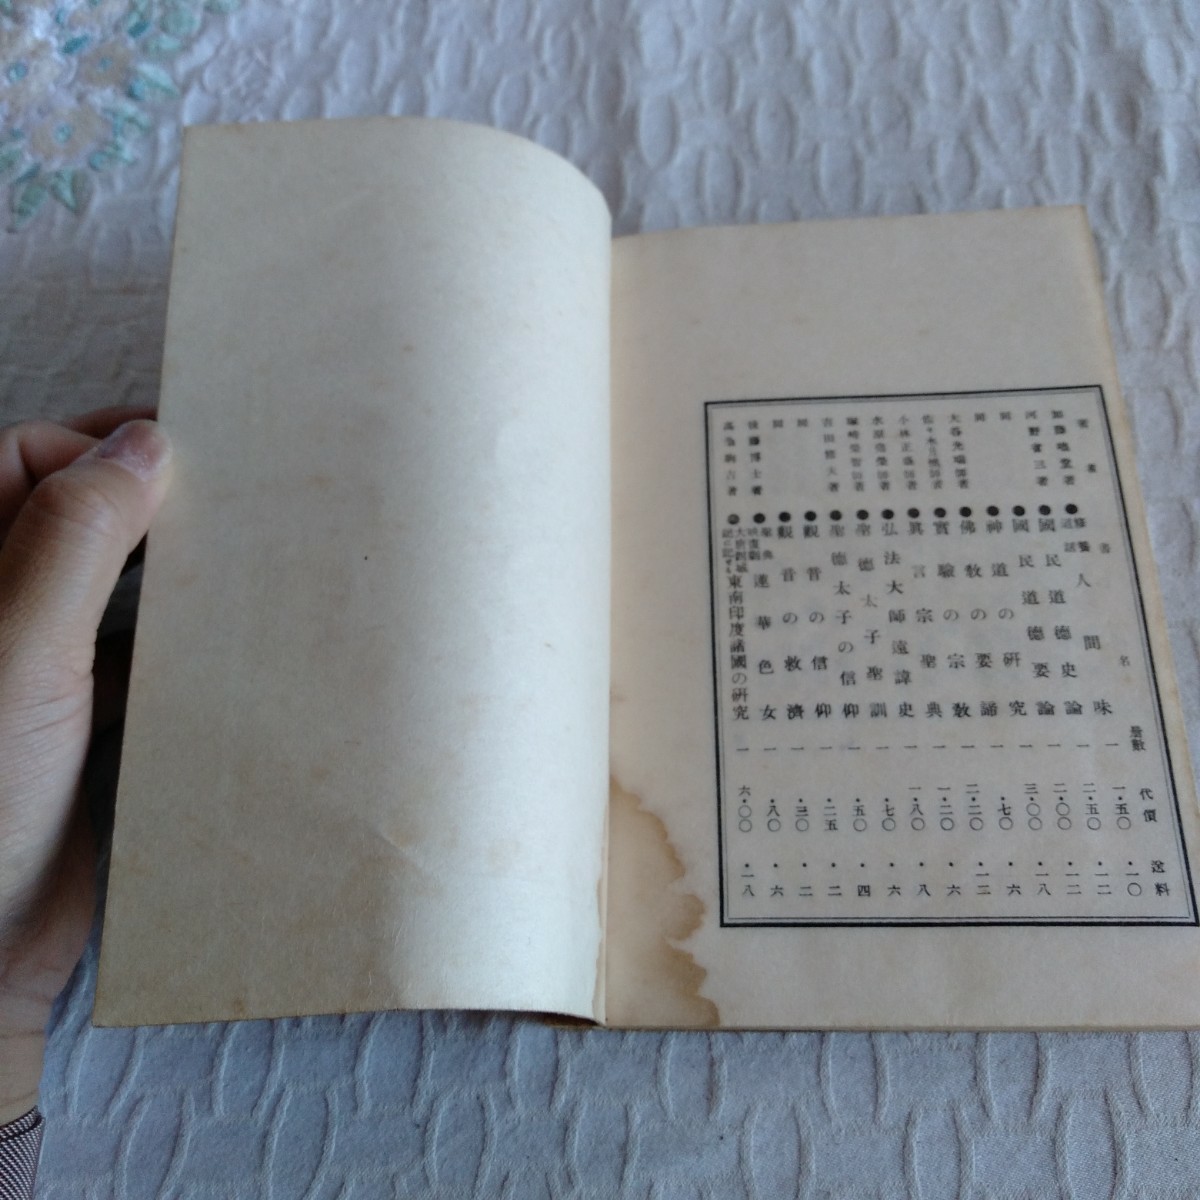 著者 書名 册數 代價 送料
加藤咄堂著 ●修養道話 人間味 一 一・五〇 ・一〇
河野省三著 ●國民道德史論 一 二・五〇 ・一二
同 ●國民道德要論 一 二・〇〇 ・一二
同 ●神道の研究 一 三・〇〇 ・一八
大谷光瑞師著 ●佛敎の要諦 一 ・七〇 ・六
佐々木月樵師著 ●實驗の宗敎 一 二・二〇 ・一二
小林正盛師著 ●眞言宗聖典 一 一・二〇 ・六
水原堯榮師著 ●弘法大師遠諱史 一 一・八〇 ・八
塚崎榮智師著 ●聖德太子聖訓 一 ・七〇 ・六
吉田 夫著 ●聖德太子の信仰 一 ・五〇 ・四
同 ●觀音の信仰 一 ・二五 ・二
同 ●觀音の救濟 一 ・三〇 ・二
後藤博士著 ●蓮華色女 一 ・八〇 ・六
高桑駒吉著 ●大唐西域記に記せる東南印度諸國の研究 一 六・〇〇 ・一八